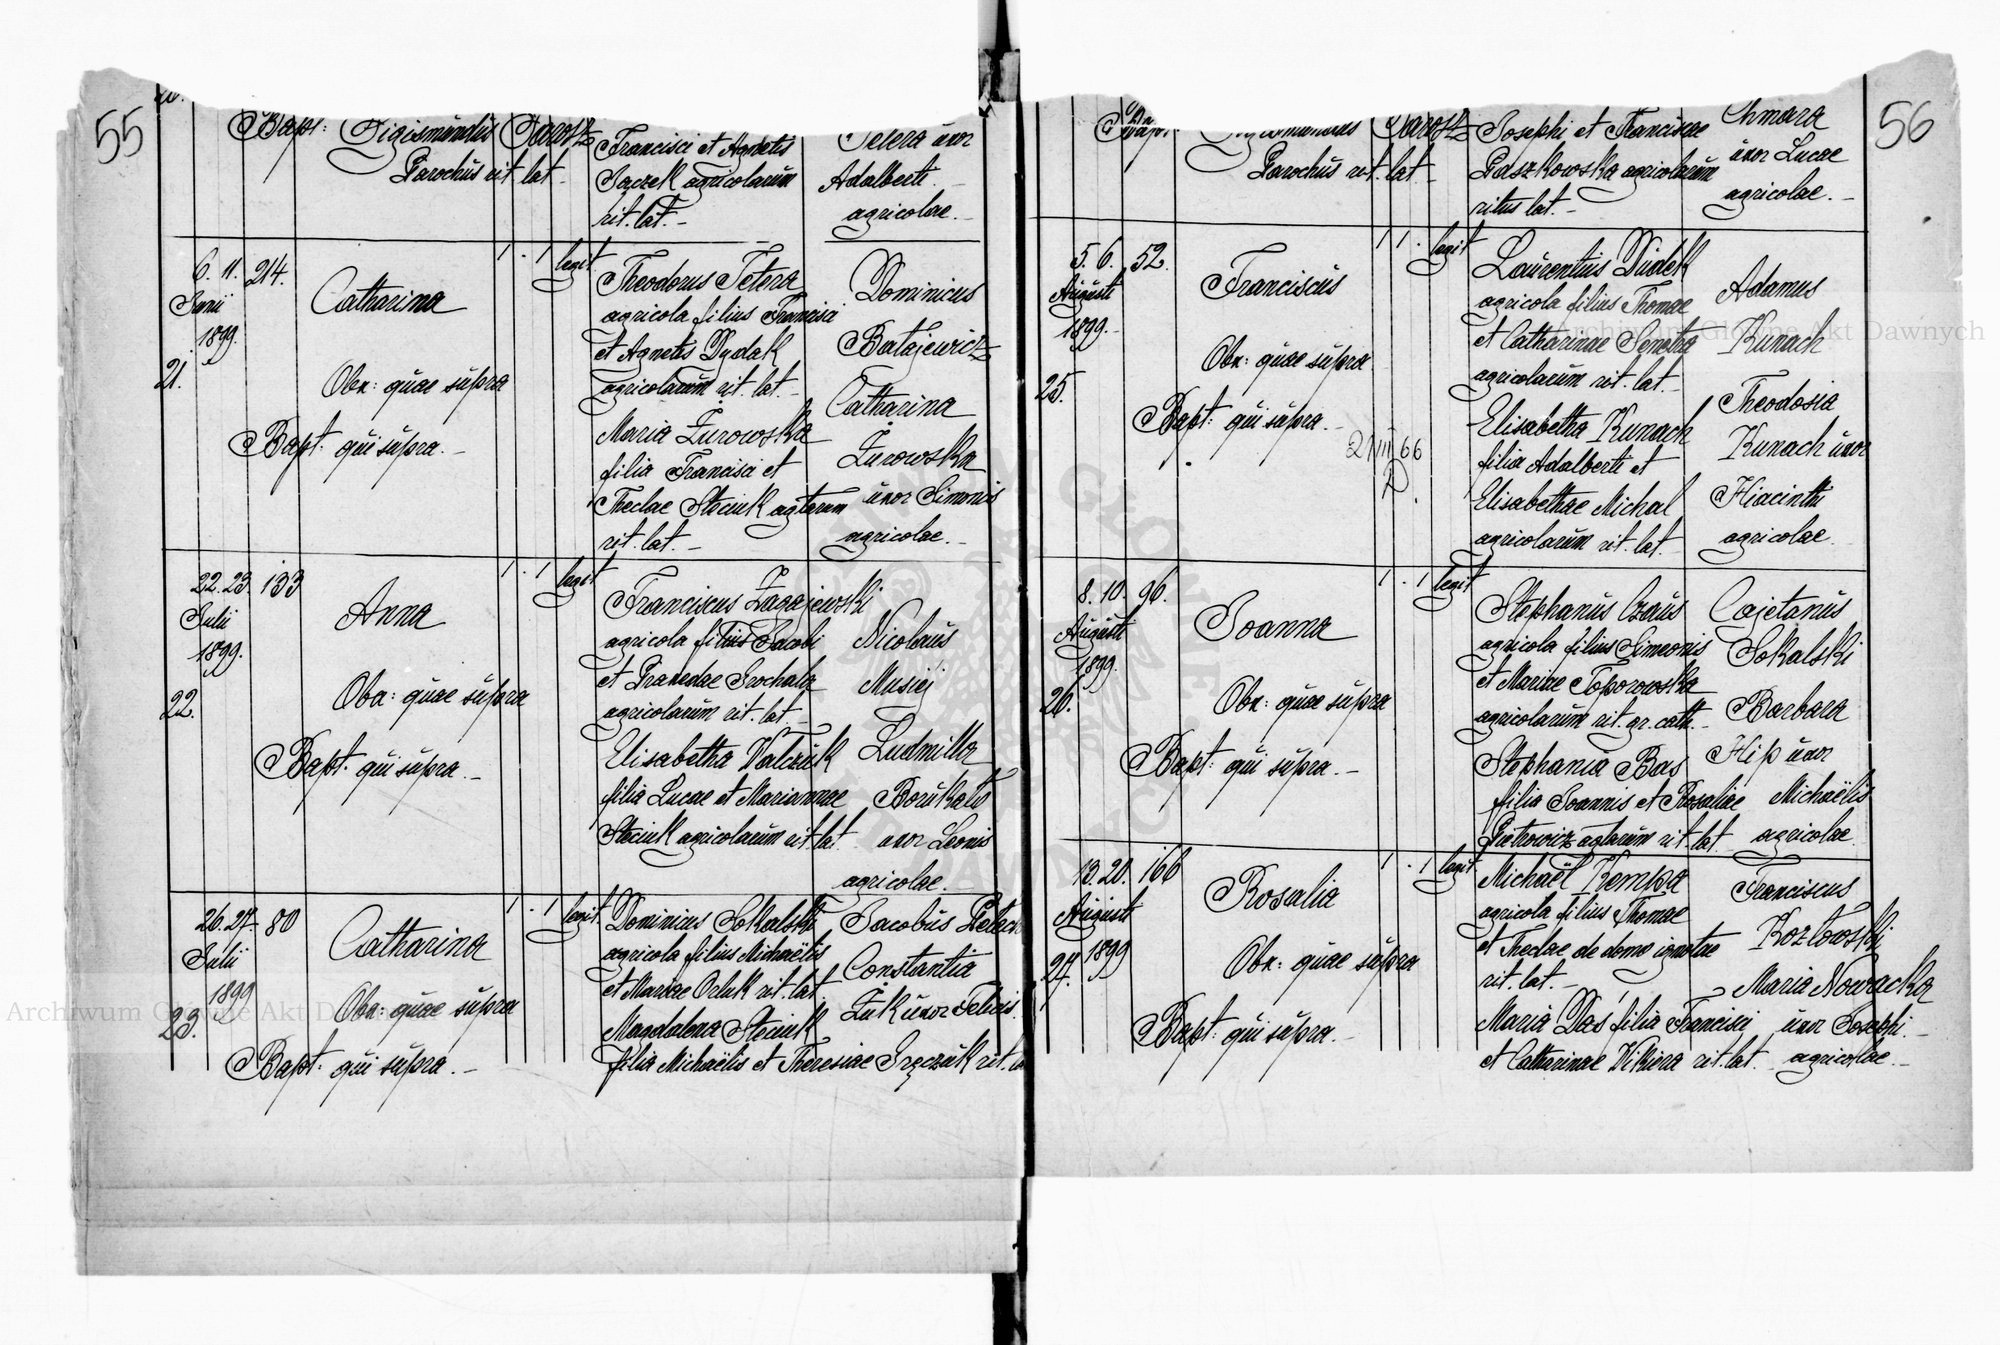 55
Bapt: Sigismundus Jarosz
Parochus rit. lat.
Francisci et Agnetis
Jaczek agricolarum
rit. lat. -
Tetera uxor
Adalberti
agricolae. -
6. 11. 214.
Junii
1899.
21.
Catharina
Obx: quae supra
Bapt: qui supra. -
1 . 1 legit
Theodorus Tetera
agricola filius Francisci
et Agnetis Dydak
agricolarum rit. lat. -
Maria Żurowska
filia Francisci et
Theclae Steciuk agtarum
rit. lat. -
Dominicus
Batajewicz
Catharina
Żurowska
uxor Simonis
agricolae. -
22. 23. 133
Julii
1899.
22.
Anna
Obx: quae supra
Bapt. qui supra. -
1 . 1 legit
Franciscus Zagajewski
agricola filius Jacobi
et Praxedae Grochala
agricolarum rit. lat. -
Elisabetha Walczuk
filia Lucae et Mariannae
Steciuk agricolarum rit. lat.
Nicolaus
Musiej
Ludmilla
uxor Leonis
agricolae. -
26. 27. 80
Julii
1899
23.
Catharina
Obx: quae supra
Bapt: qui supra. -
1 . 1 legit.
Dominicus Sokalski
agricola filius Michaëlis
et Mariae Orluk rit. lat.
Magdalena Steciuk
filia Michaëlis et Theresiae rit.
Jacobus
Constantia
Żuk uxor Felicis.
56
Bapt: Jarosz
Parochus rit. lat. -
Josephi et Franciscae
Paszkowska agricolarum
ritus lat. -
Chmara
uxor Lucae
agricolae. -
5. 6. 52.
Augusti
1899.
25.
Franciscus
Obx: quae supra
Bapt: qui supra. -
21/III 66
1 1 . legit
Laurentius Dudek
agricola filius Thomae
et Catharinae Seneta
agricolarum rit. lat. -
Elisabetha Kunach
filia Adalberti et
Elisabethae Michal
agricolarum rit. lat.
Adamus
Kunach
Theodosia
Kunach uxor
Hiacinthi
agricolae
8. 10. 96.
Augusti
1899.
26.
Joanna
Obx: quae supra
Bapt: qui supra. -
1 . 1 legit
Stephanus Czaus
agricola filius Simeonis
et Mariae Toporowska
agricolarum rit. gr. cath. -
Stephania Bas
filia Joannis et Rosaliae
Pietrowicz agtarum rit. lat.
Cajetanus
Sokalski
Barbara
Hip uxor
Michaëlis
agricolae
13. 20. 166
Augusti
1899
27.
Rosalia
Obx: quae supra
Bapt: qui supra. -
1 . 1 legit.
Michaël Kempa
agricola filius Thomae
et Theclae de domo ignotae
rit. lat. -
Maria Das filia Francisci
et Catharinae Wikiera rit. lat.
Franciscus
Kozłowski
Maria Nowacka
uxor Josephi -
agricolae. -
Archiwum Główne Akt Dawnych
Archiwum Główne Akt Dawnych